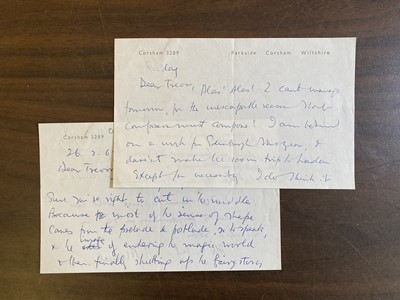 Corsham 3289 Parkside Corsham Wiltshire
Dear Trevor, Alas! Alas! I can't manage
tomorrow, for the inescapable reason that
composers must compose! I am behind
on a work for Edinburgh &
daren't make the room trip to London
Except for necessity. I do think it
Corsham 3289
Dear Trevor
Sure is right, to cut in the middle
Because most of the sense of shape
comes from the prelude & postlude, so to speak,
& the of entering the magic world
& then finally shutting up the fairy story,